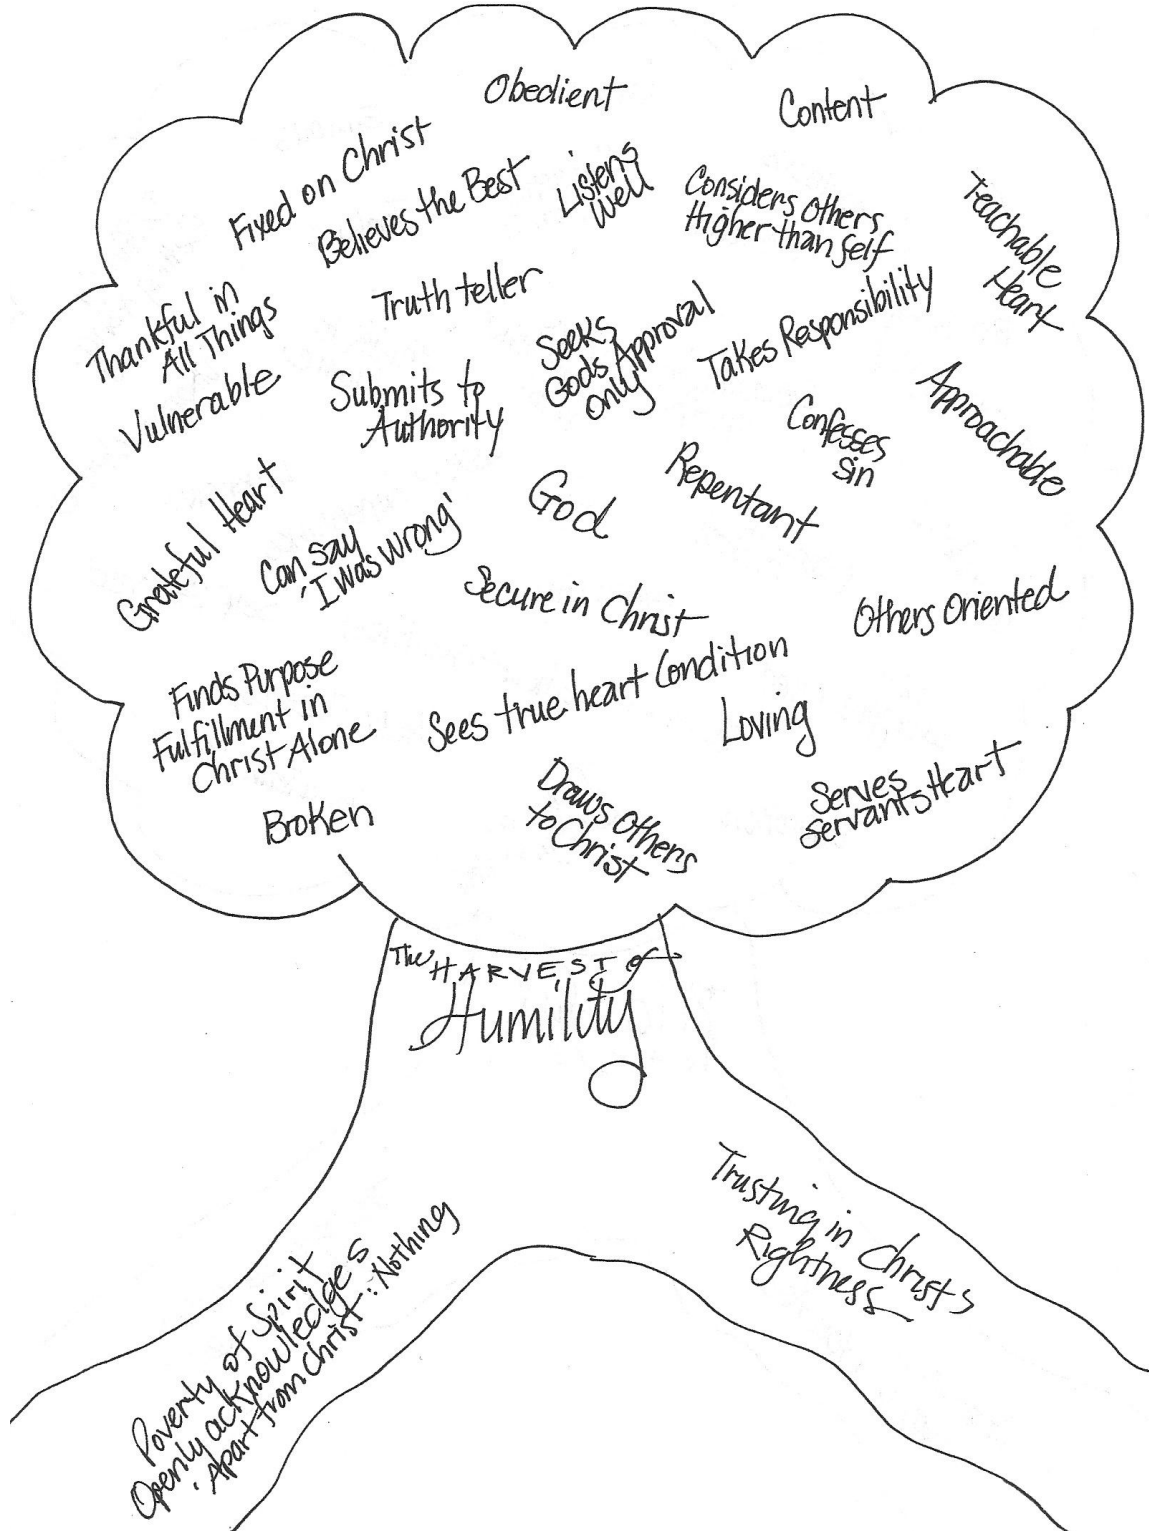 Obedient
Content
Fixed on Christ
Believes the Best
Listens
Well
Considers others
Higher than self
Teachable
Heart
Thankful in
All Things
Truth teller
Seeks
Gods Approval
only
Takes Responsibility
Vulnerable
Submits to
Authority
Confesses
sin
Approachable
Grateful Heart
Can say
'I was wrong'
God
Repentant
Secure in Christ
Others Oriented
Finds Purpose
Fulfillment in
Christ Alone
Sees true heart Condition
Loving
Broken
Draws others
to Christ
Serves
servants Heart
The HARVEST of
Humility
Poverty of Spirit
Openly acknowledges
. Apart from Christ : Nothing
Trusting in Christ's
Rightness